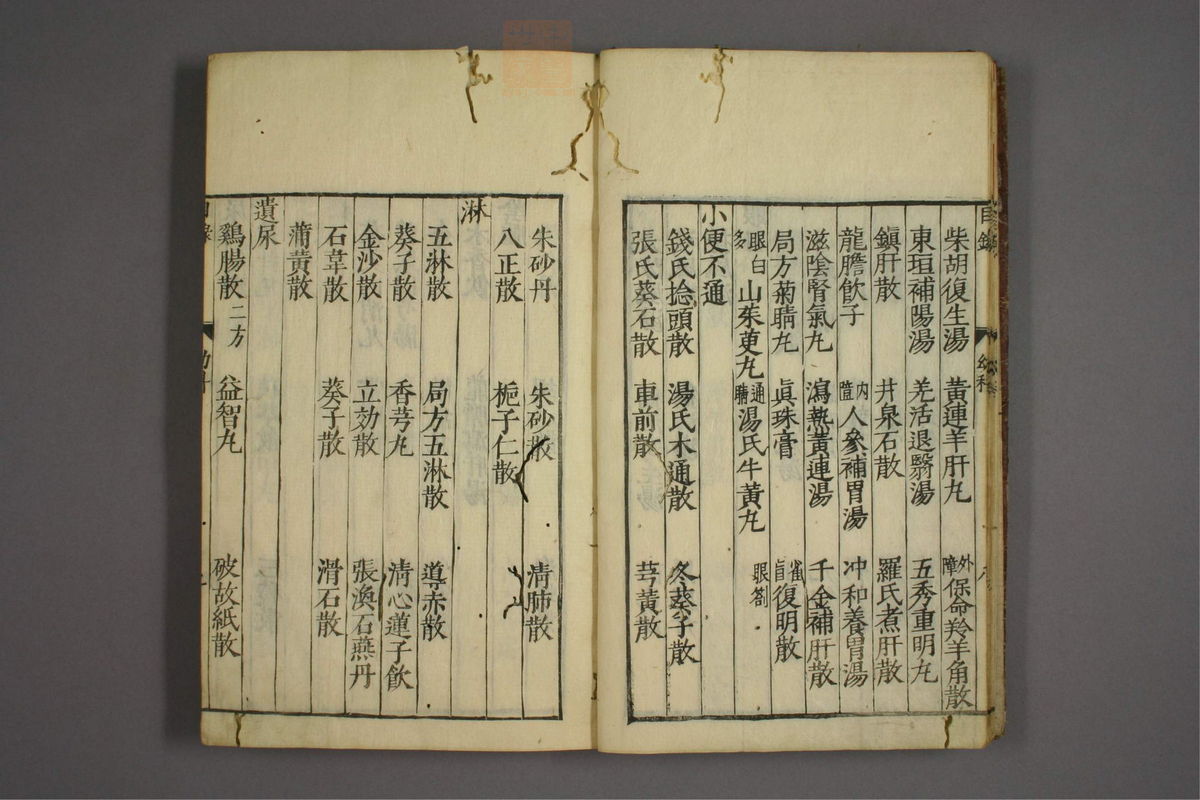 目錄 幼科
柴胡復生湯 黃連羊肝丸 外障保命羚羊角散
東垣補陽湯 羌活退翳湯 五秀重明丸
鎮肝散 井泉石散 羅氏煮肝散
龍膽飲子 內障人參補胃湯 冲和養胃湯
滋陰腎氣丸 瀉熱黃連湯 千金補肝散
局方菊睛丸 眞珠膏 雀盲復明散
眼白多山茱萸丸 通睛湯氏牛黃丸 眼劄
小便不通
錢氏捻頭散 湯氏木通散 冬葵子散
張氏葵石散 車前散 芎黃散
朱砂丹 朱砂散 淸肺散
八正散 梔子仁散
淋
五淋散 局方五淋散 導赤散
葵子散 香芎丸 淸心蓮子飲
金沙散 立効散 張渙石燕丹
石韋散 葵子散 滑石散
蒲黃散
遺尿
鷄腸散二方 益智丸 破故紙散